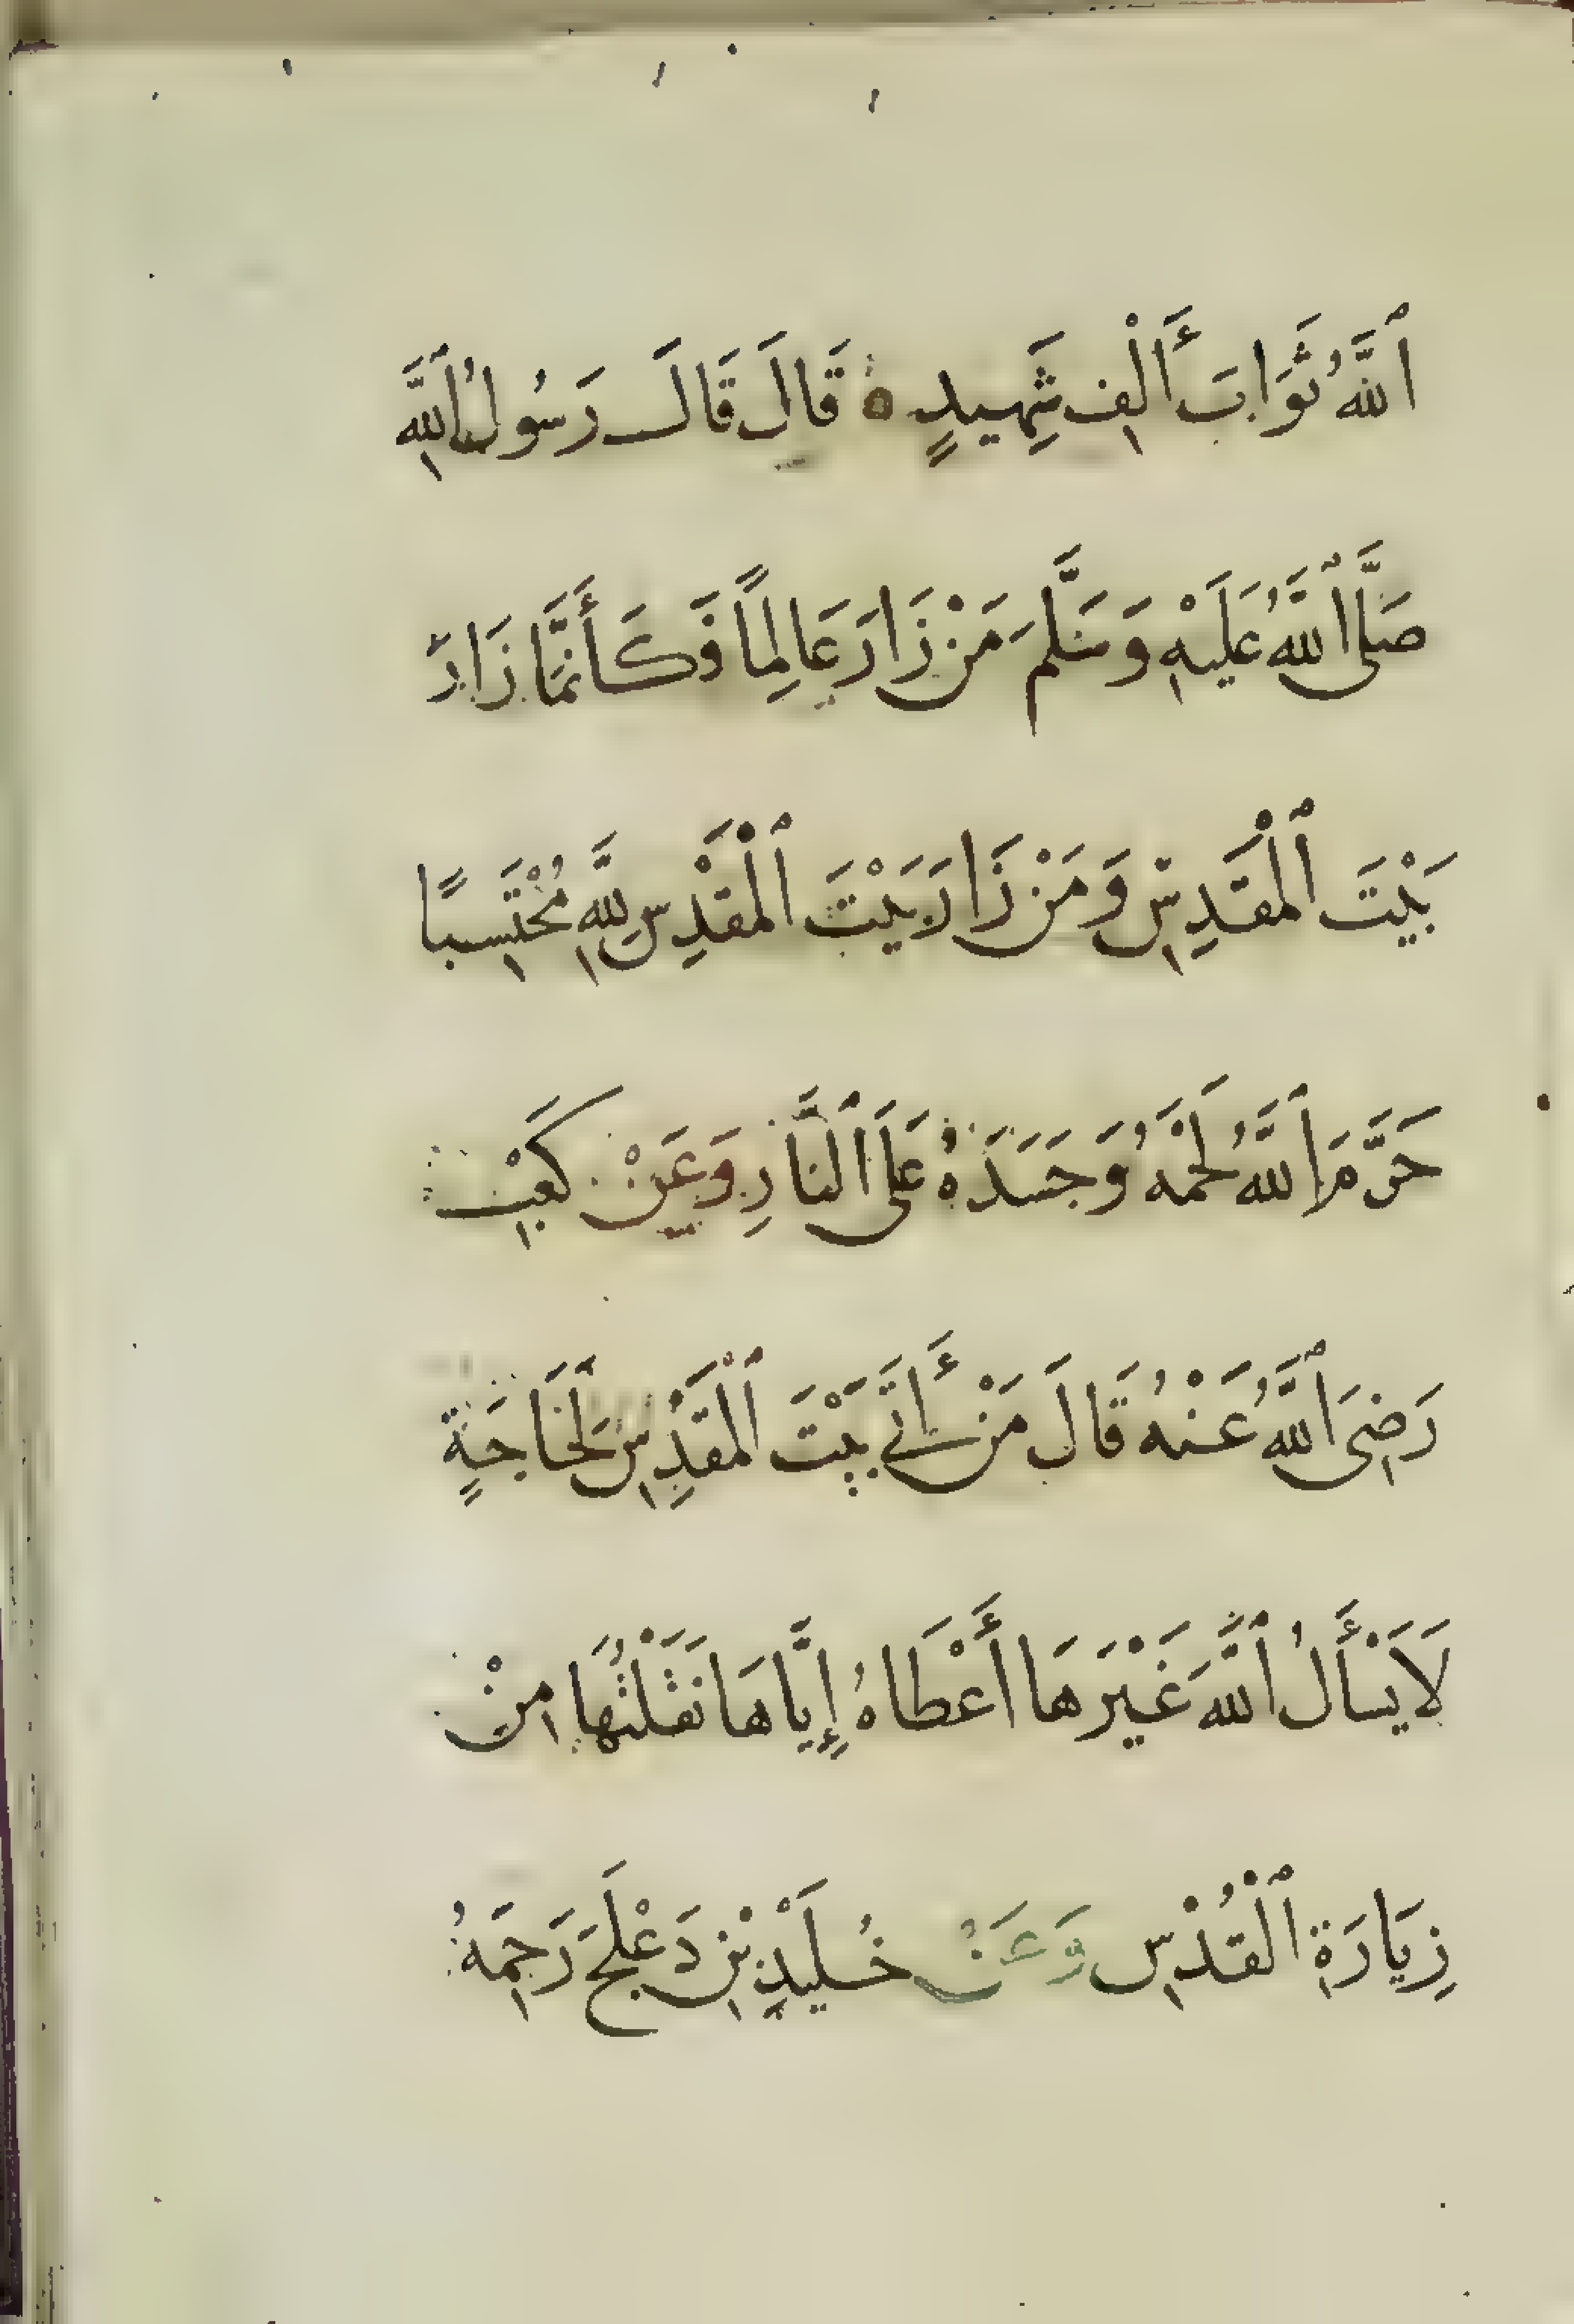 ٱللَّهُ ثَوَابَ أَلْفِ شَهِيدٍ ه قَالَ قَالَ رَسُولُ ٱللَّهِ
صَلَّى ٱللَّهُ عَلَيْهِ وَسَلَّمَ مَنْ زَارَ عَالِمًا فَكَأَنَّمَا زَارَ
بَيْتَ ٱلْمَقْدِسِ وَمَنْ زَارَ بَيْتَ ٱلْمَقْدِسِ لِلَّهِ مُحْتَسِبًا
حَرَّمَ ٱللَّهُ لَحْمَهُ وَجَسَدَهُ عَلَى ٱلنَّارِ وَعَنْ كَعْبٍ
رَضِىَ ٱللَّهُ عَنْهُ قَالَ مَنْ أَتَى بَيْتَ ٱلْمَقْدِسِ لِحَاجَةٍ
لَا يَسْأَلُ ٱللَّهَ غَيْرَهَا أَعْطَاهُ إِيَّاهَا نَقَلْتُهَا مِنْ
زِيَارَةِ ٱلْقُدْسِ وَعَنْ خُلَيْدِ بْنِ دَعْلَجَ رَحِمَهُ